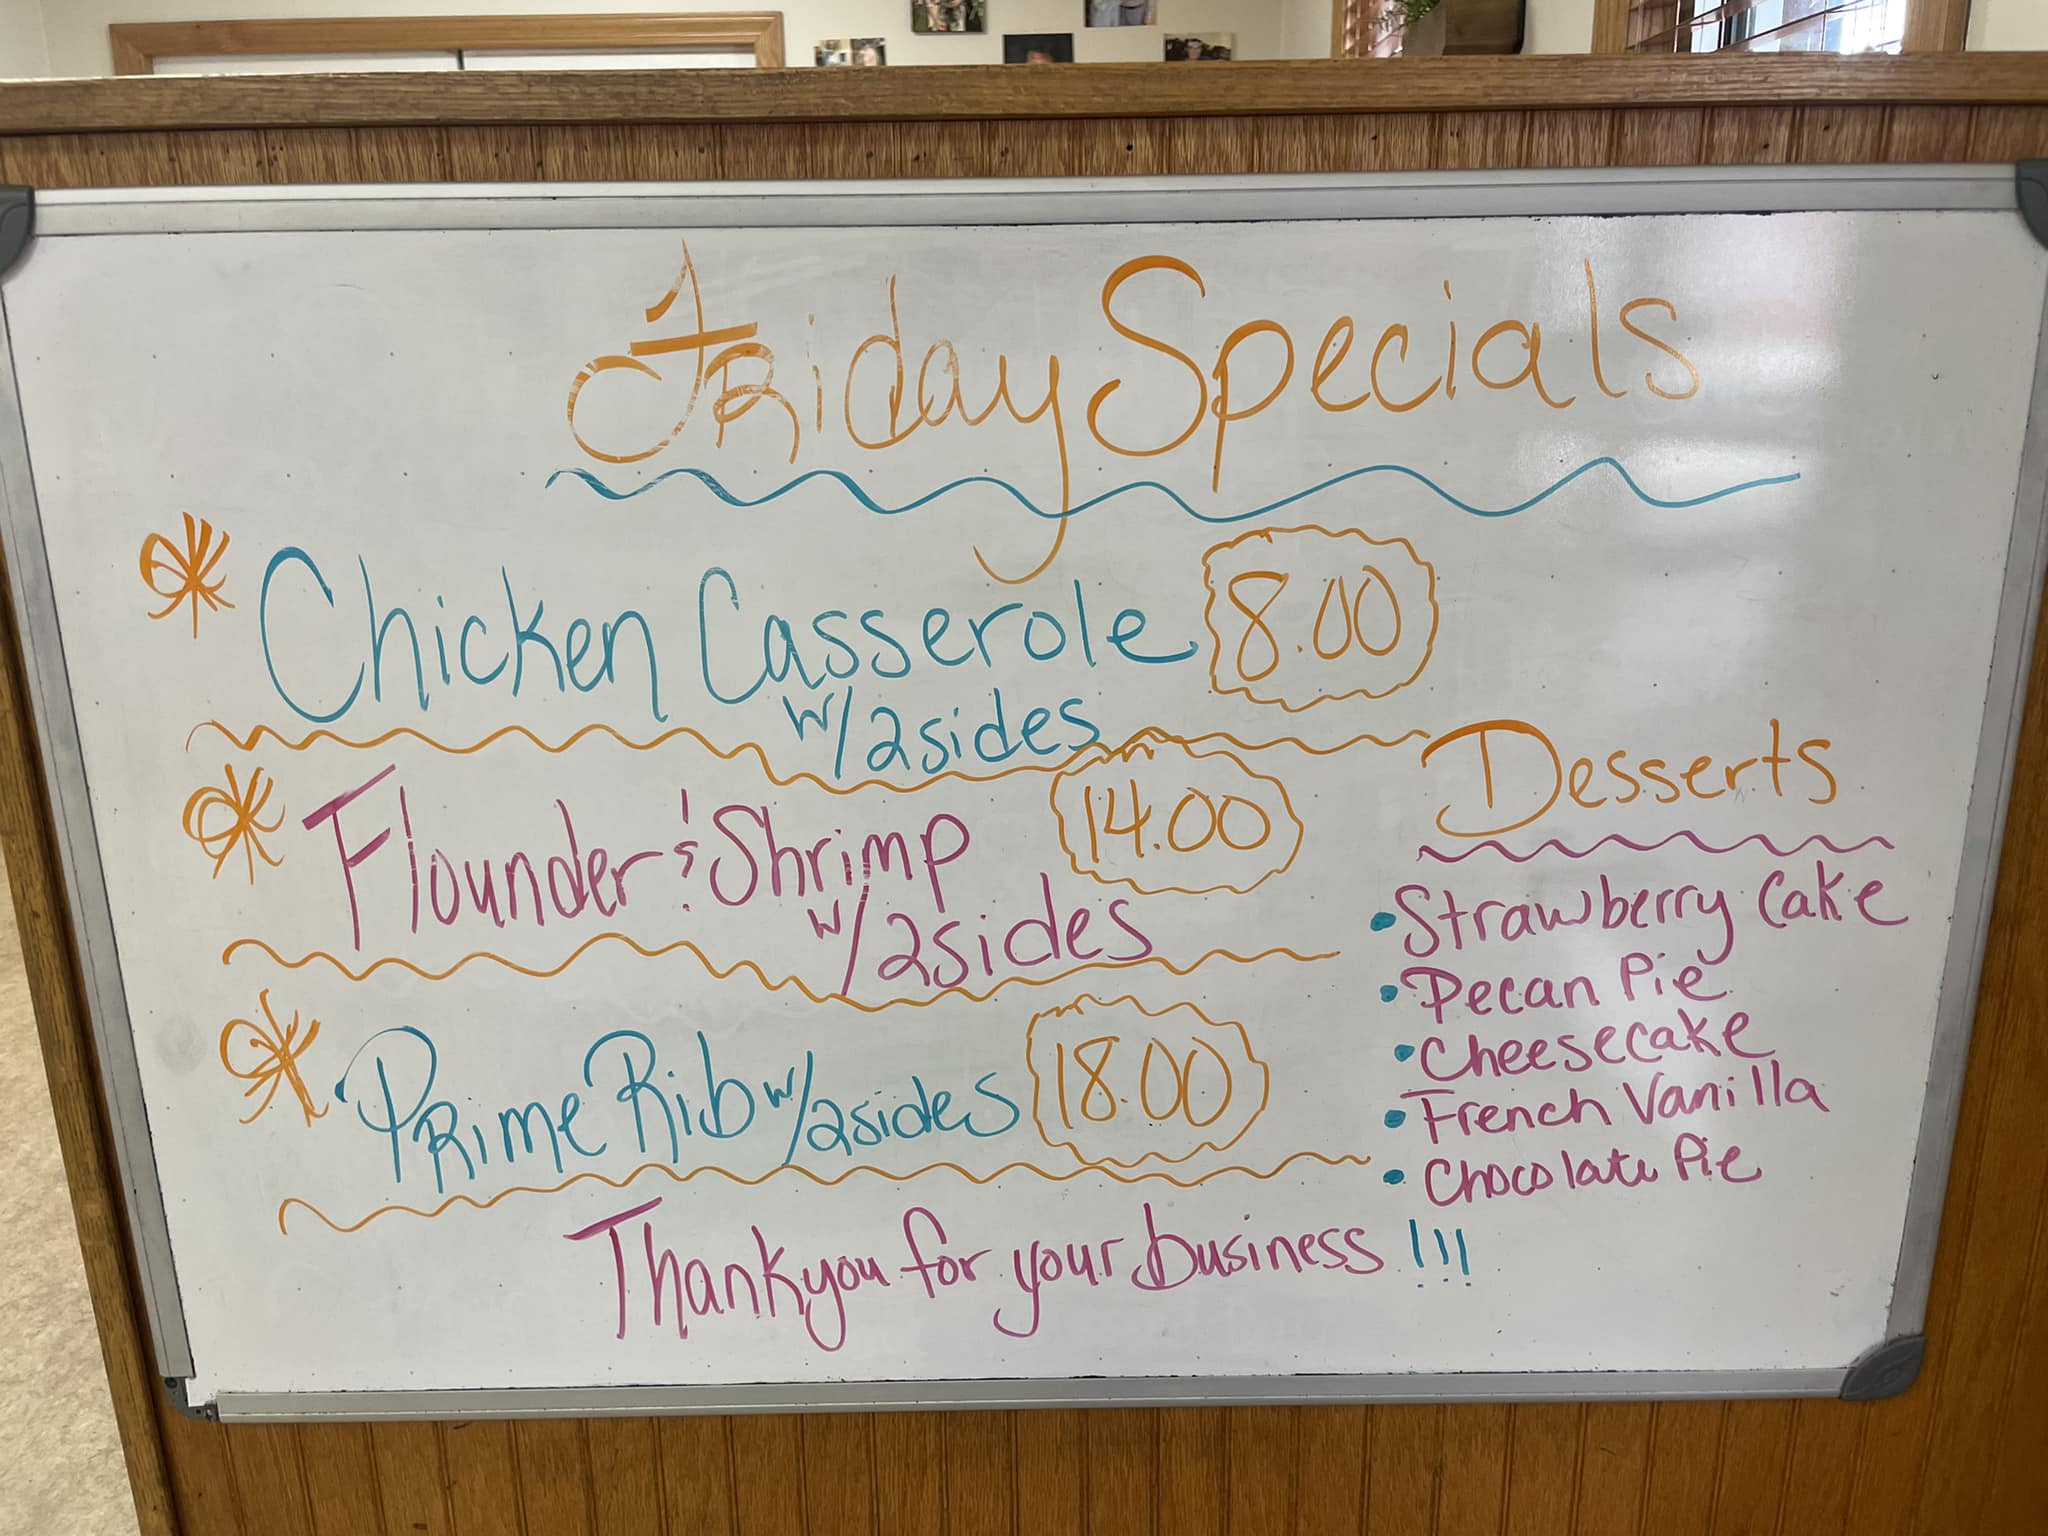 Friday Specials
Chicken Casserole 8.00
w/2sides
Flounder & Shrimp 14.00
w/2sides
Prime Rib w/2sides 18.00
Desserts
• Strawberry Cake
• Pecan Pie
• Cheesecake
• French Vanilla
• Chocolate Pie
Thankyou for your business !!!